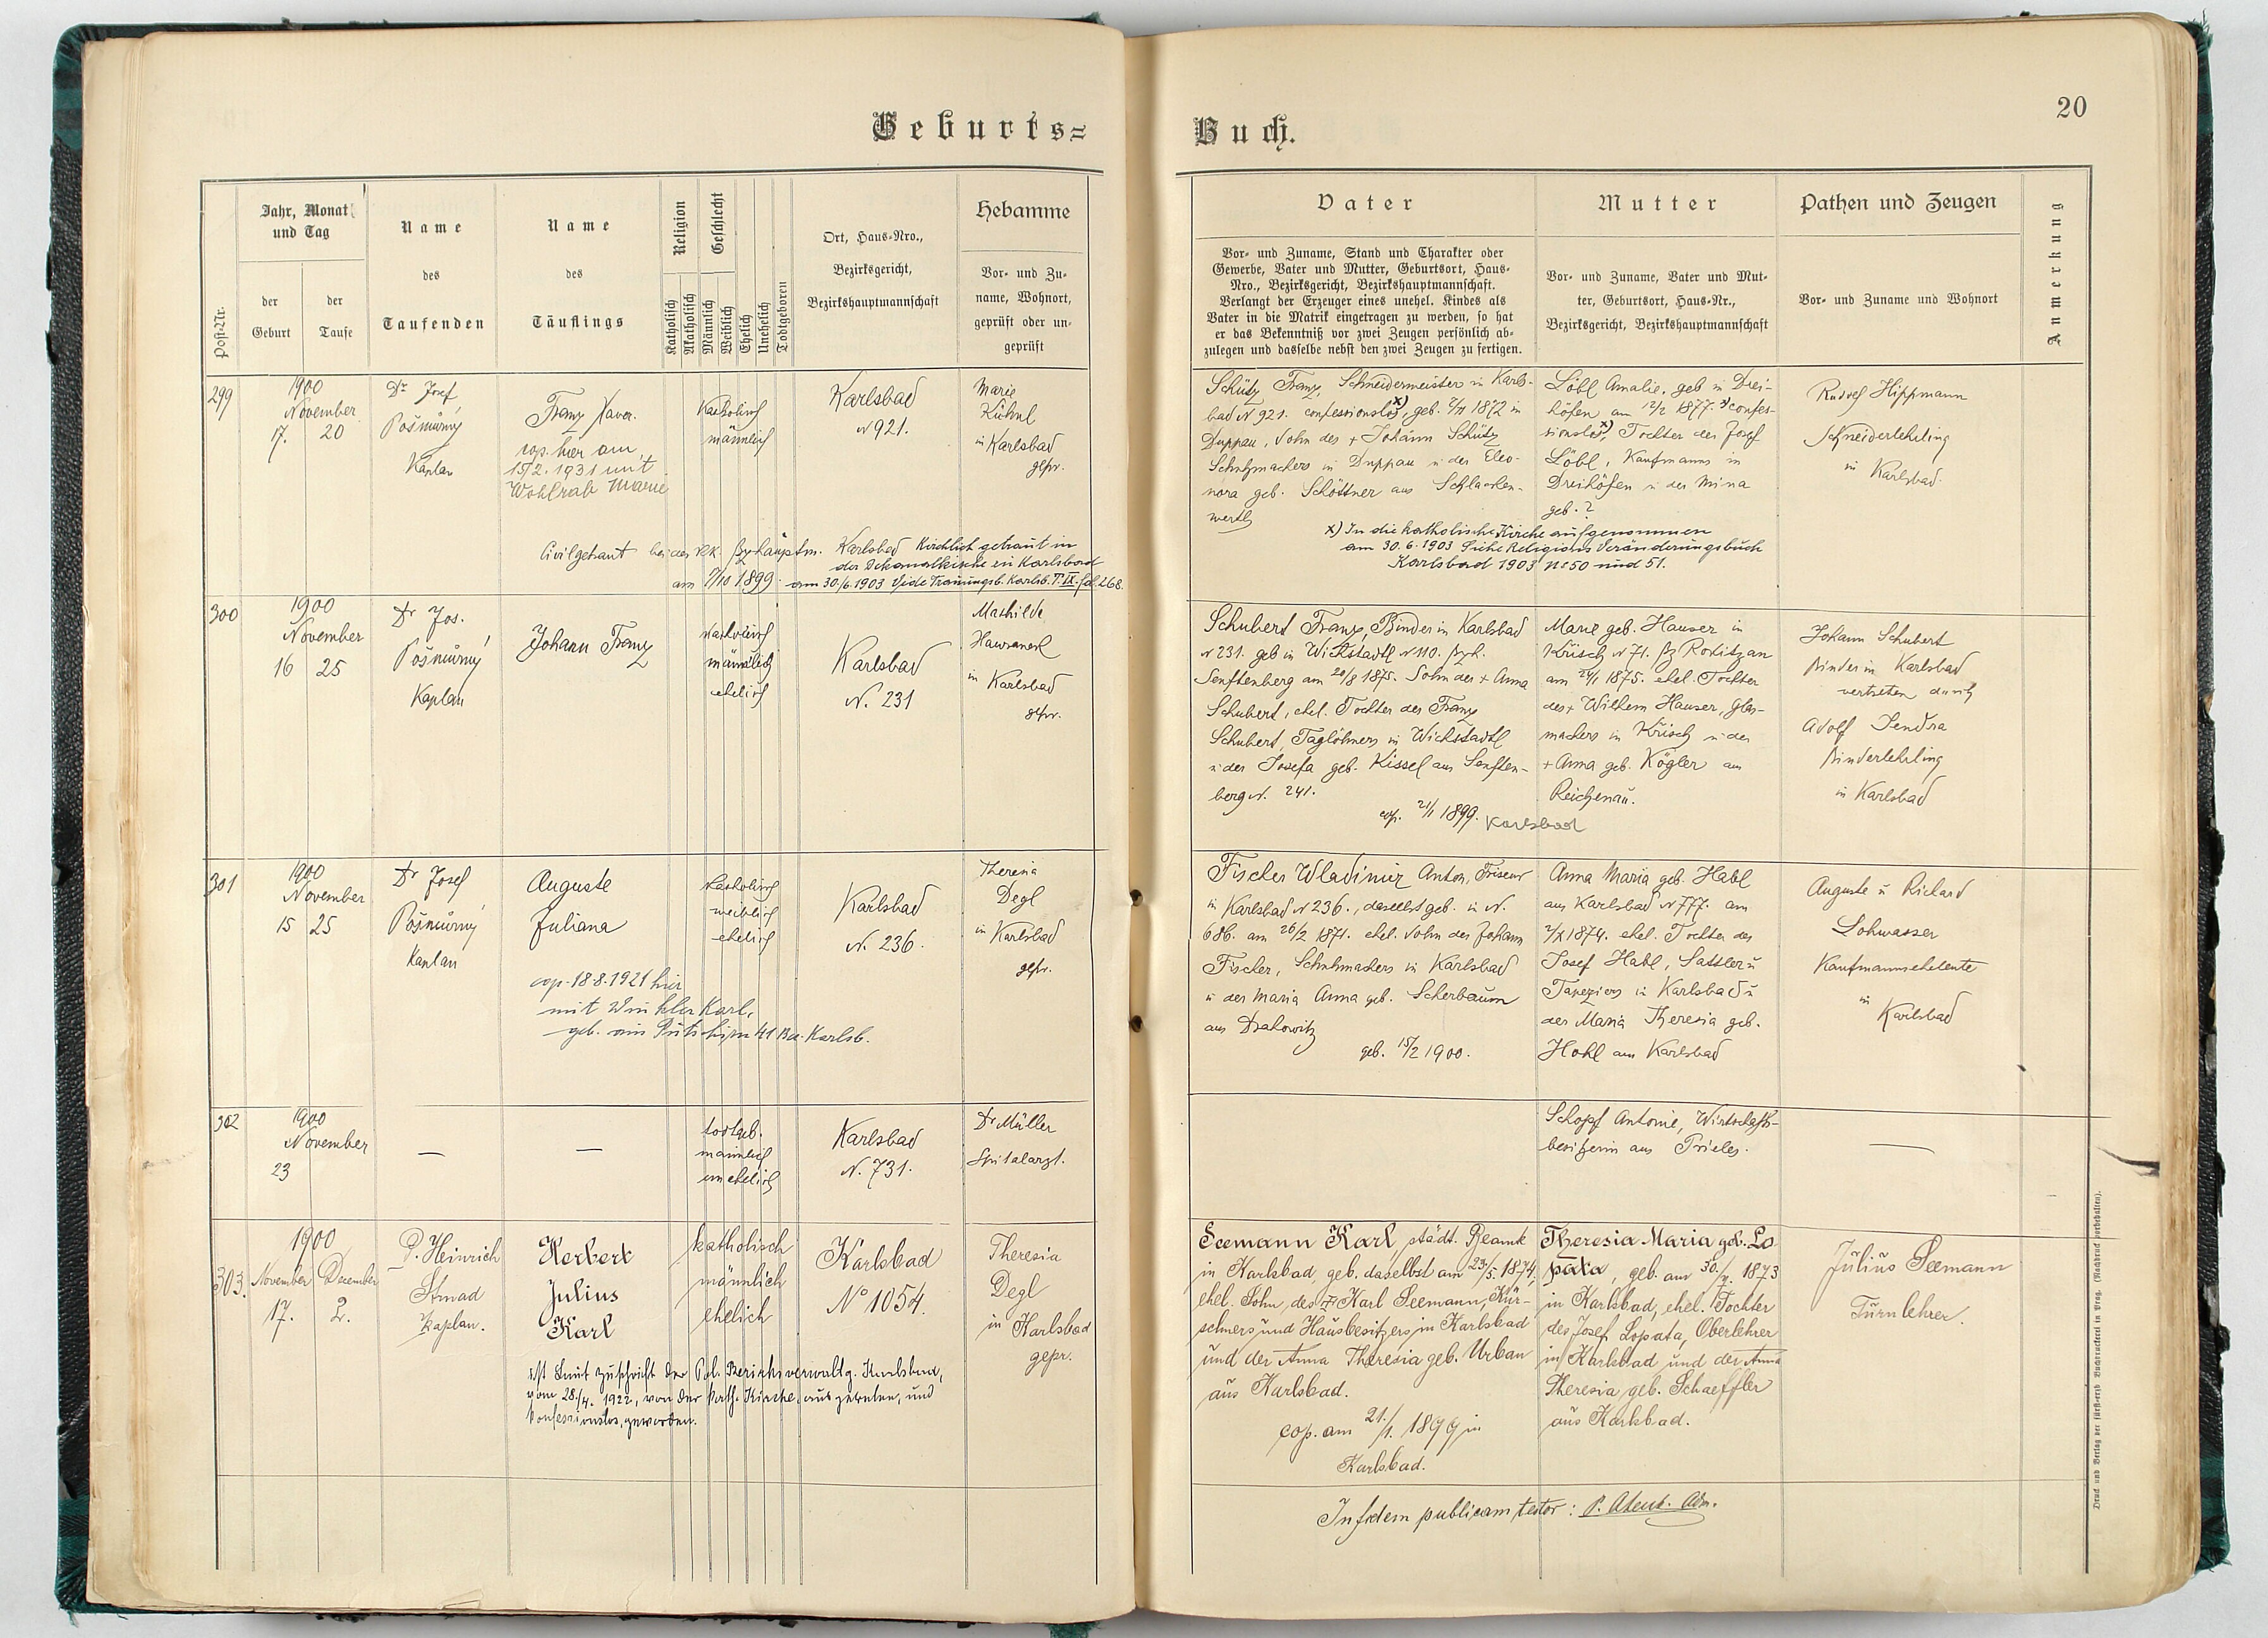 Geburts=
Buch.
20
Post-Nr.
Jahr, Monat
und Tag
der
Geburt
der
Taufe
Name
des
Taufenden
Name
des
Täuflings
Religion
Katholisch
Akatholisch
Geschlecht
Männlich
Weiblich
Ehelich
Unehelich
Todtgeboren
Ort, Haus-Nro.,
Bezirksgericht,
Bezirkshauptmannschaft
Hebamme
Vor- und Zu-
name, Wohnort,
geprüft oder un-
geprüft
Vater
Vor- und Zuname, Stand und Charakter oder
Gewerbe, Vater und Mutter, Geburtsort, Haus-
Nro., Bezirksgericht, Bezirkshauptmannschaft.
Verlangt der Erzeuger eines unehel. Kindes als
Vater in die Matrik eingetragen zu werden, so hat
er das Bekenntniß vor zwei Zeugen persönlich ab-
zulegen und dasselbe nebst den zwei Zeugen zu fertigen.
Mutter
Vor- und Zuname, Vater und Mut-
ter, Geburtsort, Haus-Nr.,
Bezirksgericht, Bezirkshauptmannschaft
Pathen und Zeugen
Vor- und Zuname und Wohnort
Anmerkung
299
1900
November
17. 20
Dr Josef
Pošmůrný
Kaplan
Franz Xaver.
cop. hier am
15/2. 1931 mit
Wohlrab Marie
Katholisch
männlich
Karlsbad
N 921.
Marie
Kühnl
in Karlsbad
gepr.
Civilgetraut bei der k.k. Bzhauptm. Karlsbad Kirchlich getraut in
der Dekanalkirche in Karlsbad
am 7/10 1899. am 30/6.1903 Vide Trauungsb. Karlsb. T. IX. fol. 268.
Schütz Franz, Schneidermeister in Karls-
bad N 921. confessionslos x), geb. 2/11 1872 in
Duppau, Sohn des + Johann Schütz
Schuhmachers in Duppau u der Eleo-
nora geb. Schöttner aus Schlacken-
werth
Löbl Amalie, geb in Drei-
höfen am 12/2 1877. confes-
sionslos x), Tochter des Josef
Löbl, Kaufmanns in
Dreihöfen u der Mina
geb. ?
x) In die katholische Kirche aufgenommen
am 30.6.1903 Siehe Religions Veränderungsbuch
Karlsbad 1903 No 50 und 51.
Rudolf Hippmann
Schneiderlehrling
in Karlsbad.
300
1900
November
16 25
Dr Jos.
Pošmůrný
Kaplan
Johann Franz
katholisch
männlich
ehelich
Karlsbad
N. 231
Mathilde
Hawranek
in Karlsbad
gepr.
Schubert Franz, Binder in Karlsbad
N 231. geb in Wichstadtl N 110. Bzk.
Senftenberg am 20/8 1875. Sohn der + Anna
Schubert, ehel. Tochter des Franz
Schubert, Taglöhners in Wichstadtl
u der Josefa geb. Kissel aus Senften-
berg N. 241.
cop. 21/1 1899. Karlsbad
Marie geb. Hauser in
Křisch N 71. Bz Rokitzan
am 24/1 1875. ehel. Tochter
des + Wilhem Hauser, Glas-
machers in Křisch u der
+ Anna geb. Kögler aus
Reichenau.
Johann Schubert
Binder in Karlsbad
vertreten durch
Adolf Jendra
Binderlehrling
in Karlsbad
301
1900
November
15 25
Dr Josef
Pošmůrný
Kaplan
Auguste
Juliana
cop. 18.8.1921 hier
mit Winkler Karl,
geb. aus Putschirn 41 Bez. Karlsb.
katholisch
weiblich
ehelich
Karlsbad
N. 236.
Theresia
Degl
in Karlsbad
gepr.
Fischer Wladimir Anton, Friseur
in Karlsbad N 236., daselbst geb. in N.
686. am 26/2 1871. ehel. Sohn des Johann
Fischer, Schuhmachers in Karlsbad
u der Maria Anna geb. Scherbaum
aus Drahowitz
geb. 15/2 1900.
Anna Maria geb. Habl
aus Karlsbad N 777. am
2/X 1874. ehel. Tochter des
Josef Habl, Sattler u
Tapezirers in Karlsbad u
der Maria Theresia geb.
Hohl aus Karlsbad
Auguste u Richard
Lohwasser
Kaufmannseheleute
in
Karlsbad
302
1900
November
23
—
—
todtgeb.
männlich
unehelich
Karlsbad
N. 731.
Dr Müller
Spitalarzt.
Schopf Antonie, Wirtschafts-
besitzerin aus Prieles.
303.
1900
November December
17. 2.
P. Heinrich
Strnad
Kaplan.
Herbert
Julius
Karl
Ist laut Zuschrift der Pol. Bezirksverwaltg. Karlsbad,
vom 28/4. 1922, von der kath. Kirche ausgetreten, und
konfessionslos geworden.
katholisch
männlich
ehelich
Karlsbad
No 1054.
Theresia
Degl
in Karlsbad
gepr.
Seemann Karl, städt. Beamte
in Karlsbad, geb. daselbst am 23/5. 1874,
ehel. Sohn, des + Karl Seemann, Kür-
schners und Hausbesitzers in Karlsbad
und der Anna Theresia geb. Urban
aus Karlsbad.
cop. am 21./1. 1899 in
Karlsbad.
Theresia Maria geb. Lo
pata, geb. am 30./7. 1873
in Karlsbad, ehel. Tochter
des Josef Lopata, Oberlehrer
in Karlsbad und der Anna
Theresia geb. Schaeffler
aus Karlsbad.
Julius Seemann
Turnlehrer.
In fidem publicam testor:
Druck und Verlag der fürst-erzb Buchdruckerei in Prag. (Nachdruck vorbehalten).